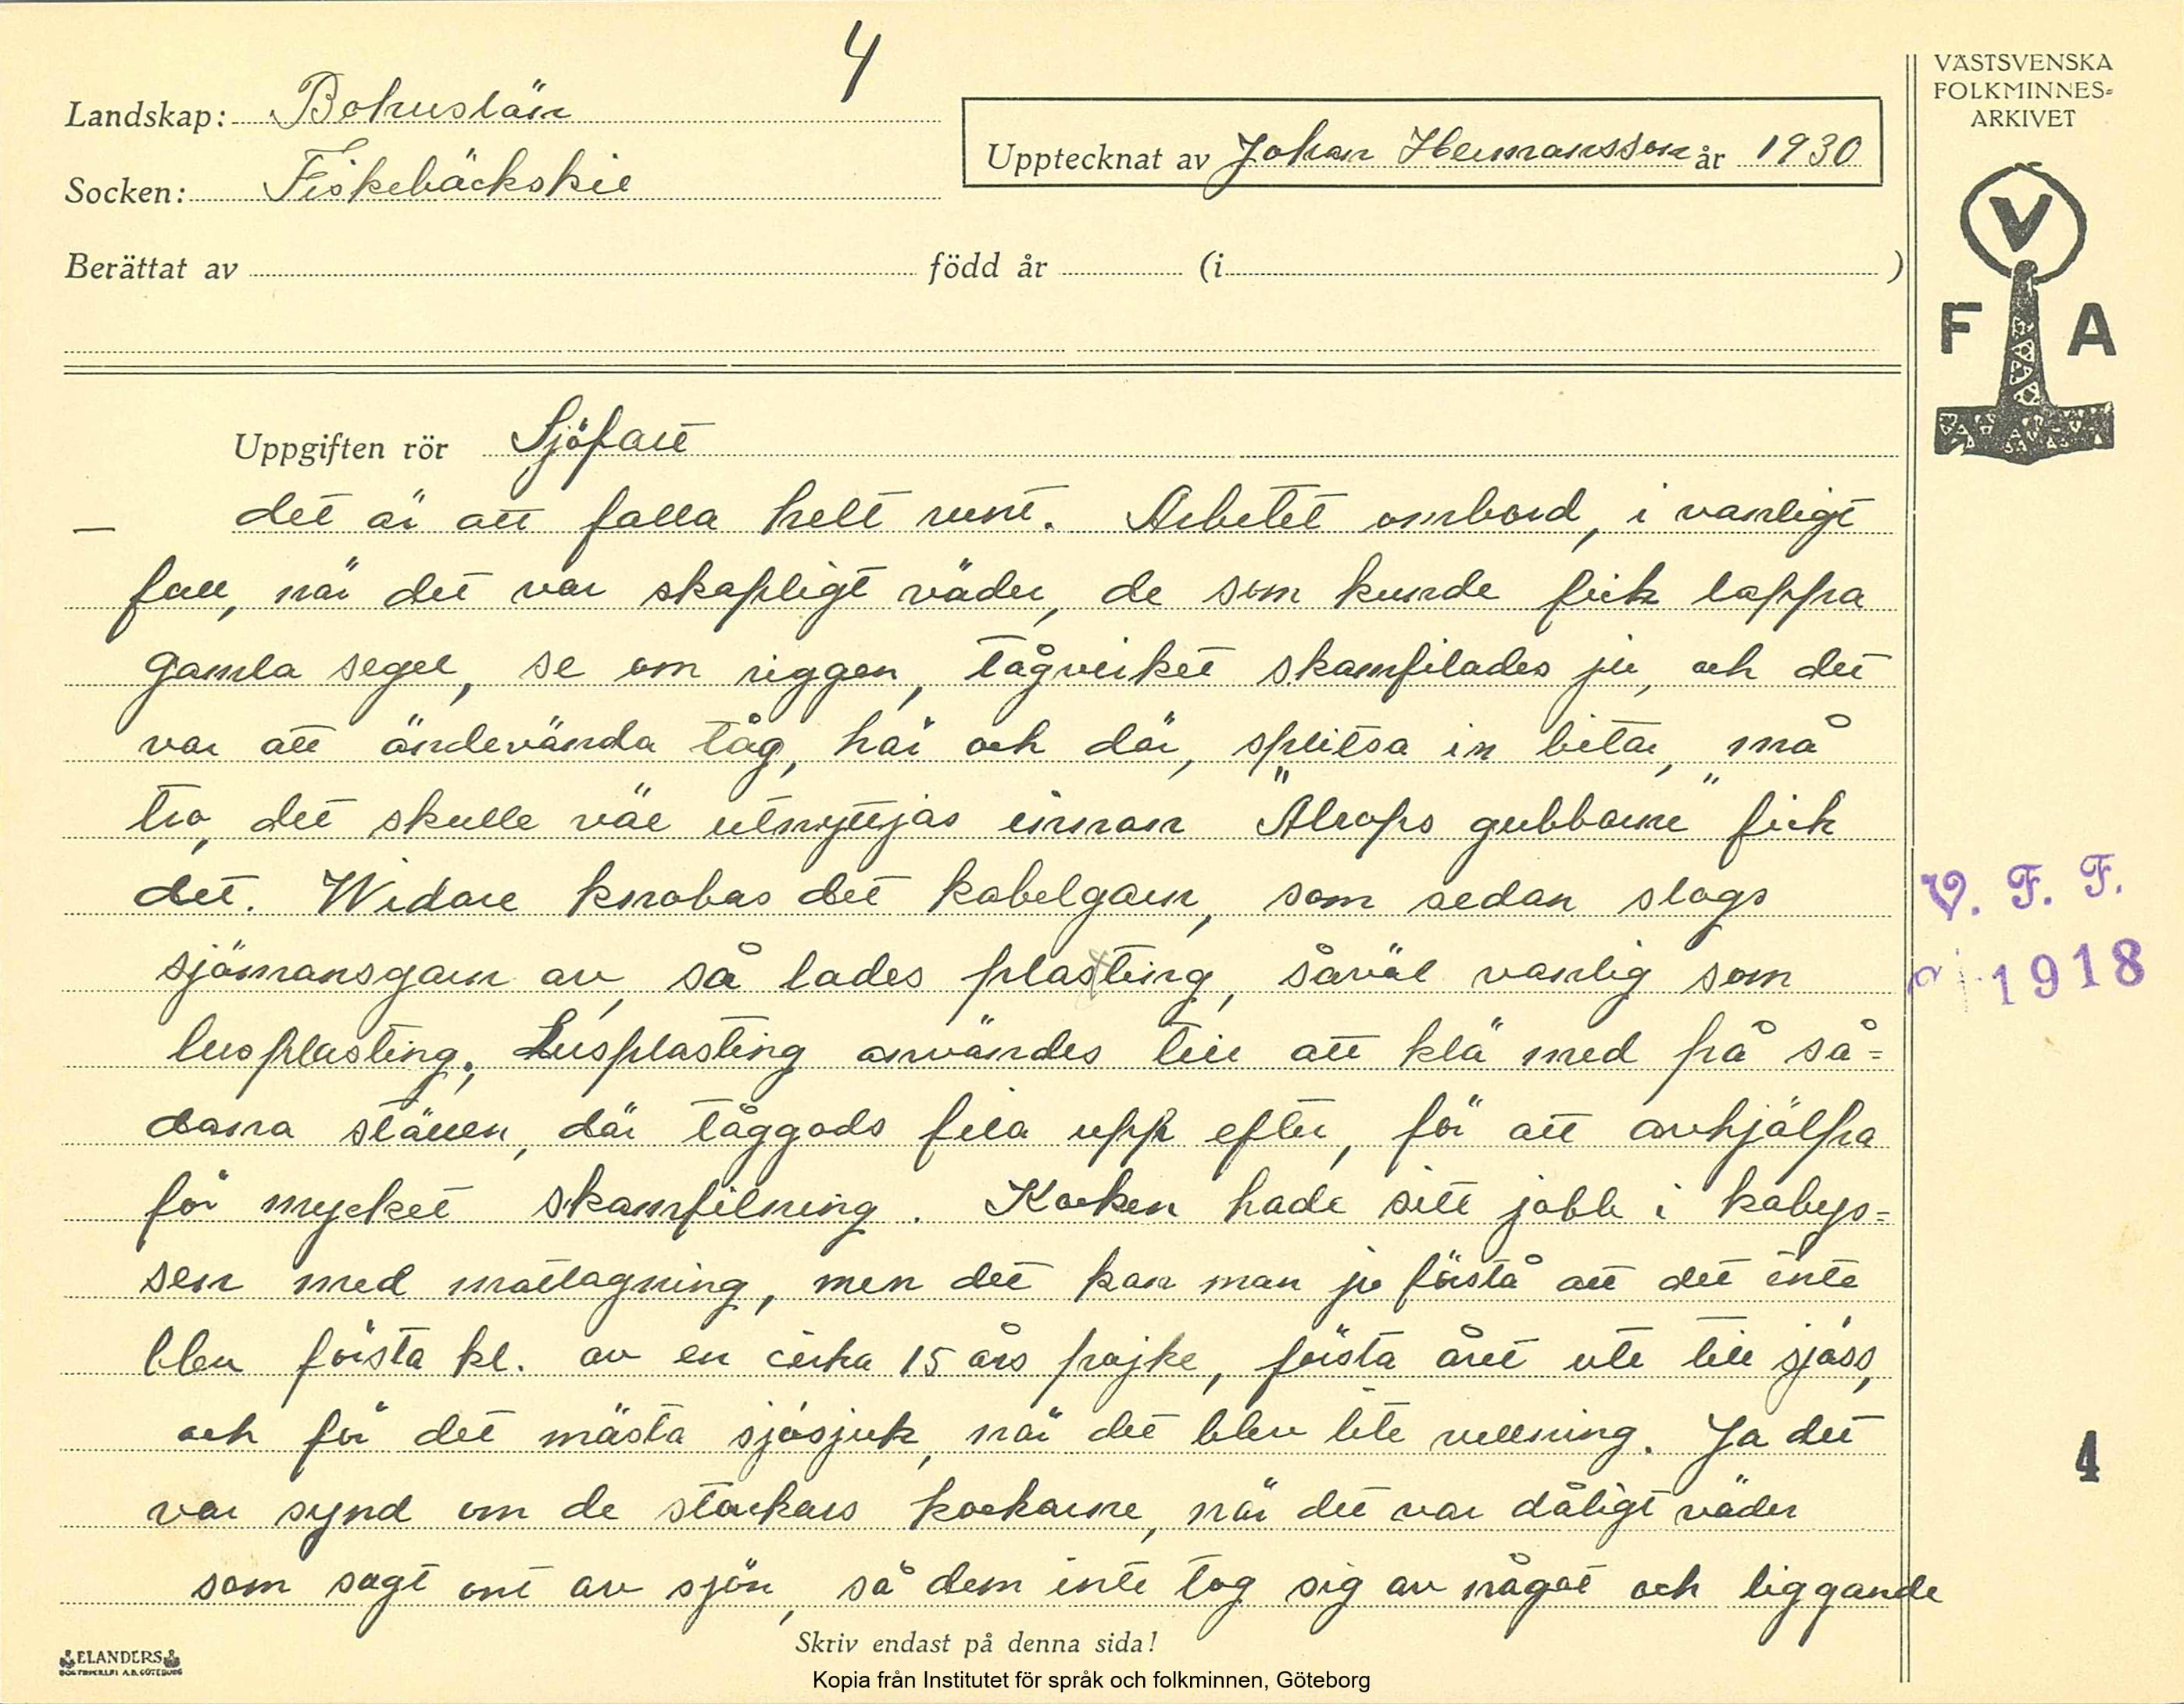 4
Landskap: Bohuslän
Socken: Fiskebäckskil
Upptecknat av Johan Hermansson år 1930
Berättat av född år (i )
VÄSTSVENSKA
FOLKMINNES-
ARKIVET
V
F A
Uppgiften rör Sjöfart
— det är att falla helt runt. Arbetet ombord, i vanligt
fall, när det var skapligt väder, de som kunde fick lappa
gamla segel, se om riggen, tågvirket skamfilades ju, och det
var att ändevända tåg, här och där, splitsa in bitar, må
tro, det skulle väl utnyttjas innan "Alrops gubbarne" fick
det. Widare knobas det kabelgarn, som sedan slogs
sjömansgarn av, så lades plasting, såväl vanlig som
lusplasting. Lusplasting användes till att klä med på så-
dana ställen, där tåggods fila upp efter, för att avhjälpa
för mycket skamfilning. Kocken hade sitt jobb i kabys-
sen med matlagning, men det kan man ju förstå att det inte
blev första kl. av en cirka 15 års pojke, första året ute till sjöss,
och för det mästa sjösjuk, när det blev lite rullning. Ja det
var synd om de stackars kockarne, när det var dåligt väder
som sagt ont av sjön, så dem inte tog sig av något och liggande
V. F. F.
1918
4
ELANDERS
BOKTRYCKERI A.B. GÖTEBORG
Skriv endast på denna sida!
Kopia från Institutet för språk och folkminnen, Göteborg